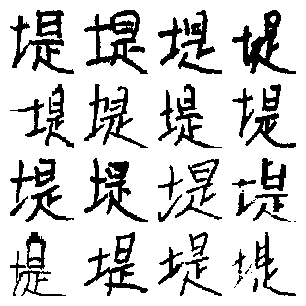 堤堤堤堤
堤堤堤堤
堤堤堤堤
堤堤堤堤